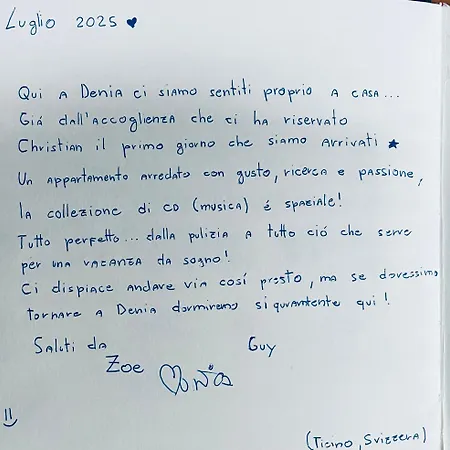 Luglio 2025 ♥
Qui a Denia ci siamo sentiti proprio a casa...
Giá dall'accoglienza che ci ha riservato
Christian il primo giorno che siamo arrivati ★
Un appartamento arredato con gusto, ricerca e passione,
la collezione di CD (musica) é spaziale!
Tutto perfetto... dalla pulizia a tutto ció che serve
per una vacanza da sogno!
Ci dispiace andare via cosí presto, ma se dovessimo
tornare a Denia dormiremo si quvantente qui!
Saluti da
Zoe
Guy
(Ticino, Svizzera)